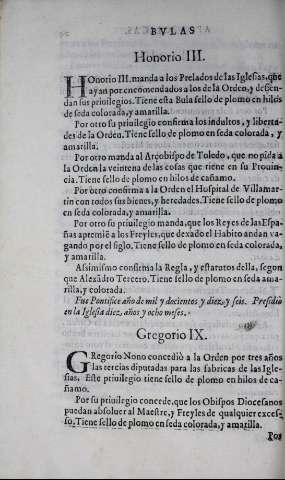 BVLAS
Honorio III.
HOnorio III. manda a los Prelados de las Iglesias, que
ayan por encomendados a los de la Orden, y defien-
dan sus priuilegios. Tiene esta Bula sello de plomo en hilos
de seda colorada, y amarilla.
Por otro su priuilegio confirma los indultos, y liberta-
des de la Orden. Tiene sello de plomo en seda colorada, y
amarilla.
Por otro manda al Arçobispo de Toledo, que no pida a
la Orden la veintena de las cosas que tiene en su Prouin-
cia. Tiene sello de plomo en hilos de cañamo.
Por otro confirma a la Orden el Hospital de Villamar-
tin con todos sus bienes, y heredades. Tiene sello de plomo
en seda colorada, y amarilla.
Por otro su priuilegio manda, que los Reyes de las Espa-
ñas apremiē a los Freyles, que dexado el Habito andan va-
gando por el siglo. Tiene sello de plomo en seda colorada,
y amarilla.
Assimismo confirma la Regla, y estatutos della, segun
que Alexādro Tercero. Tiene sello de plomo en seda ama-
rilla, y colorada.
Fue Pontifice año de mil y docientos y diez, y seis. Presidio
en la Iglesia diez, años y ocho meses.
Gregorio IX.
GRegorio Nono concediò a la Orden por tres años
las tercias diputadas para las fabricas de las Igle-
sias. Este priuilegio tiene sello de plomo en hilos de ca-
ñamo.
Por su priuilegio concede, que los Obispos Diocesanos
puedan absoluer al Maestre, y Freyles de qualquier exces-
so. Tiene sello de plomo en seda colorada, y amarilla.
Por